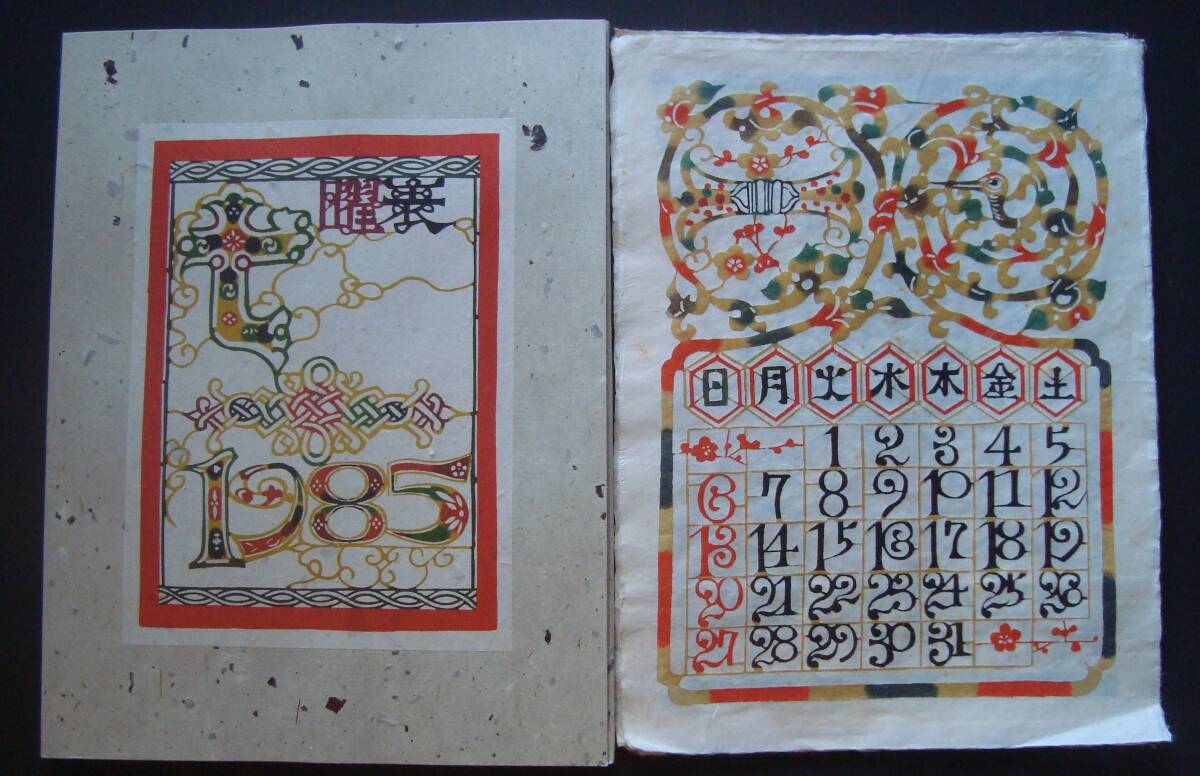 七曜表
1985
日 月 火 水 木 金 土
1 2 3 4 5
6 7 8 9 10 11 12
13 14 15 16 17 18 19
20 21 22 23 24 25 26
27 28 29 30 31